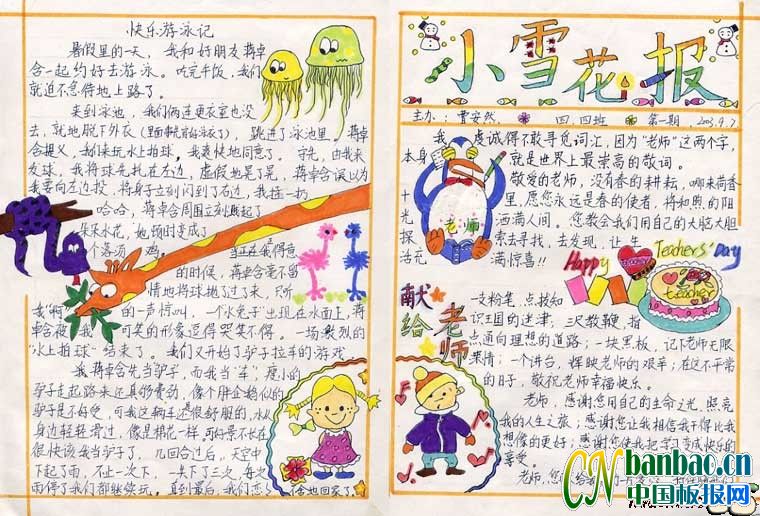 快乐游泳记
暑假里的一天，我和好朋友蒋卓
含一起约好去游泳。吃完午饭，我们
就迫不急待地上路了。
来到泳池，我们俩连更衣室也没
去，就地脱下外衣（里面事先穿泳衣了），跳进了泳池里。蒋卓
含提义，我们来玩水上拍球，我爽快地同意了。守先，由我来
发球，我将球先扎在左边，虚假地晃了晃，蒋卓含误以为
我要向左边投，将身子立刻闪到了右边，我猛一扔
哈哈，蒋卓含周围立刻溅起了
朵朵水花，她顿时变成了
个落汤鸡。当正在我得意
的时候，蒋卓含毫不留
情地将球抛了过了来，只听
我“啊”的一声惊叫，一个“水兔子”出现在水面上，蒋
卓含被我可笑的形象逗得哭笑不得。一场激烈的
“水上拍球”结束了。我们又开始了驴子拉车的游戏
蒋卓含先当驴子，而我当“车”，瘦小的
驴子走起路来还真够费劲，像个胖企鹅似的
驴子是不好受，可我这辆车还很舒服的，水从
身边轻轻滑过，像是棉花一样。可好景不长在
很快该我当驴子了，几回合过后，天空中
下起了雨，不止一次下，一共下了三次，每次
雨停了我们都继续玩。直到最后，我们恋恋
舍地回家了
小雪花报
主办：曹安然 四.四班 第一期 2003.9.7
我虔诚得不敢寻觅词汇，因为“老师”这两个字，
本身就是世界上最崇高的敬词。
敬爱的老师，没有春的耕耘，哪来荷香
十里，愿您永远是春的使者，将和煦的阳
光洒满人间。您教会我们用自己的大脑大胆
探索去寻找，去发现，让生
活充满惊喜!!
老师
Happy Teachers' Day
teacher
献给老师
一支粉笔，点拨知
识王国的迷津；三尺教鞭，指
点通向理想的道路；一块黑板，记下老师无限
深情；一个讲台，辉映老师的艰辛；在这不平常
的日子，敬祝老师幸福快乐。
老师，感谢您用自己的生命之光，照亮
我的人生之旅；感谢您让我相信我干得比我
想像的更好；感谢您使我把学习变成快乐的
享受。
老师，您
CN banbao.cn
中国板报网